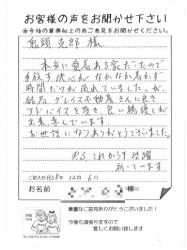 お客様の声をお聞かせ下さい
※今後の業務向上の為ご意見をお聞かせください。
克郎 様
本当に愛着ある家だったので
手放す決心がなかなか着かず
時間だけが流れていましたが、
グレイス不動産さんに良き
アドバイスを頂き、良い納得が
出来ました。
お世話になりありがとうございました。
これからも
祈っています。
ご記入日 28年 12月 6日
お名前
貴重なご意見ありがとうございました!
今後も頑張りますので
宜しくお願い致します